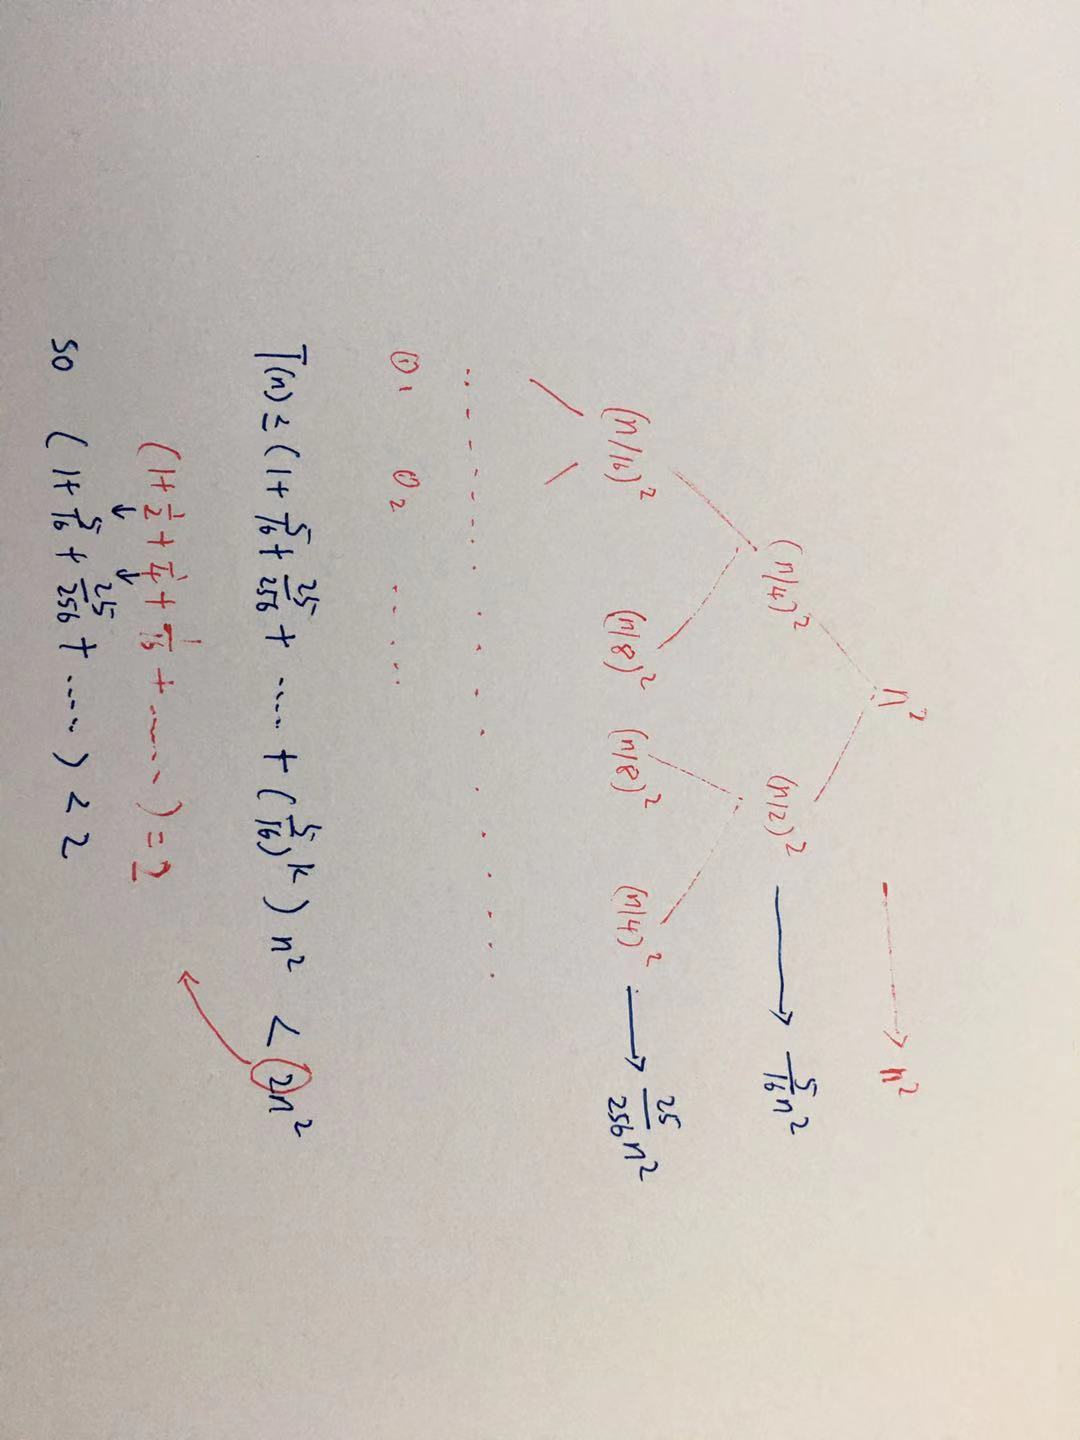 n² → n²
(n/4)² (n/2)² → 5/16 n²
(n/16)² (n/8)² (n/8)² (n/4)² → 25/256 n²
............
Θ₁ Θ₂ .....
T(n) = (1+ 5/16 + 25/256 + .... + (5/16)ᵏ) n² < 2n²
(1+ 1/2 + 1/4 + + ......) = 2
↓ ↓
so (1+ 5/16 + 25/256 + ....) < 2